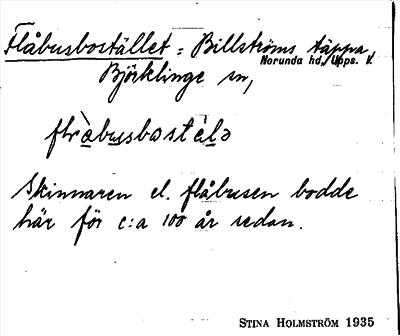 Flåbusbostället = Billströms täppa,
Norunda hd, Upps. l.
Björklinge sn,
flràbusbostèlə
Skinnaren el. flåbusen bodde
här för c:a 100 år sedan.
STINA HOLMSTRÖM 1935